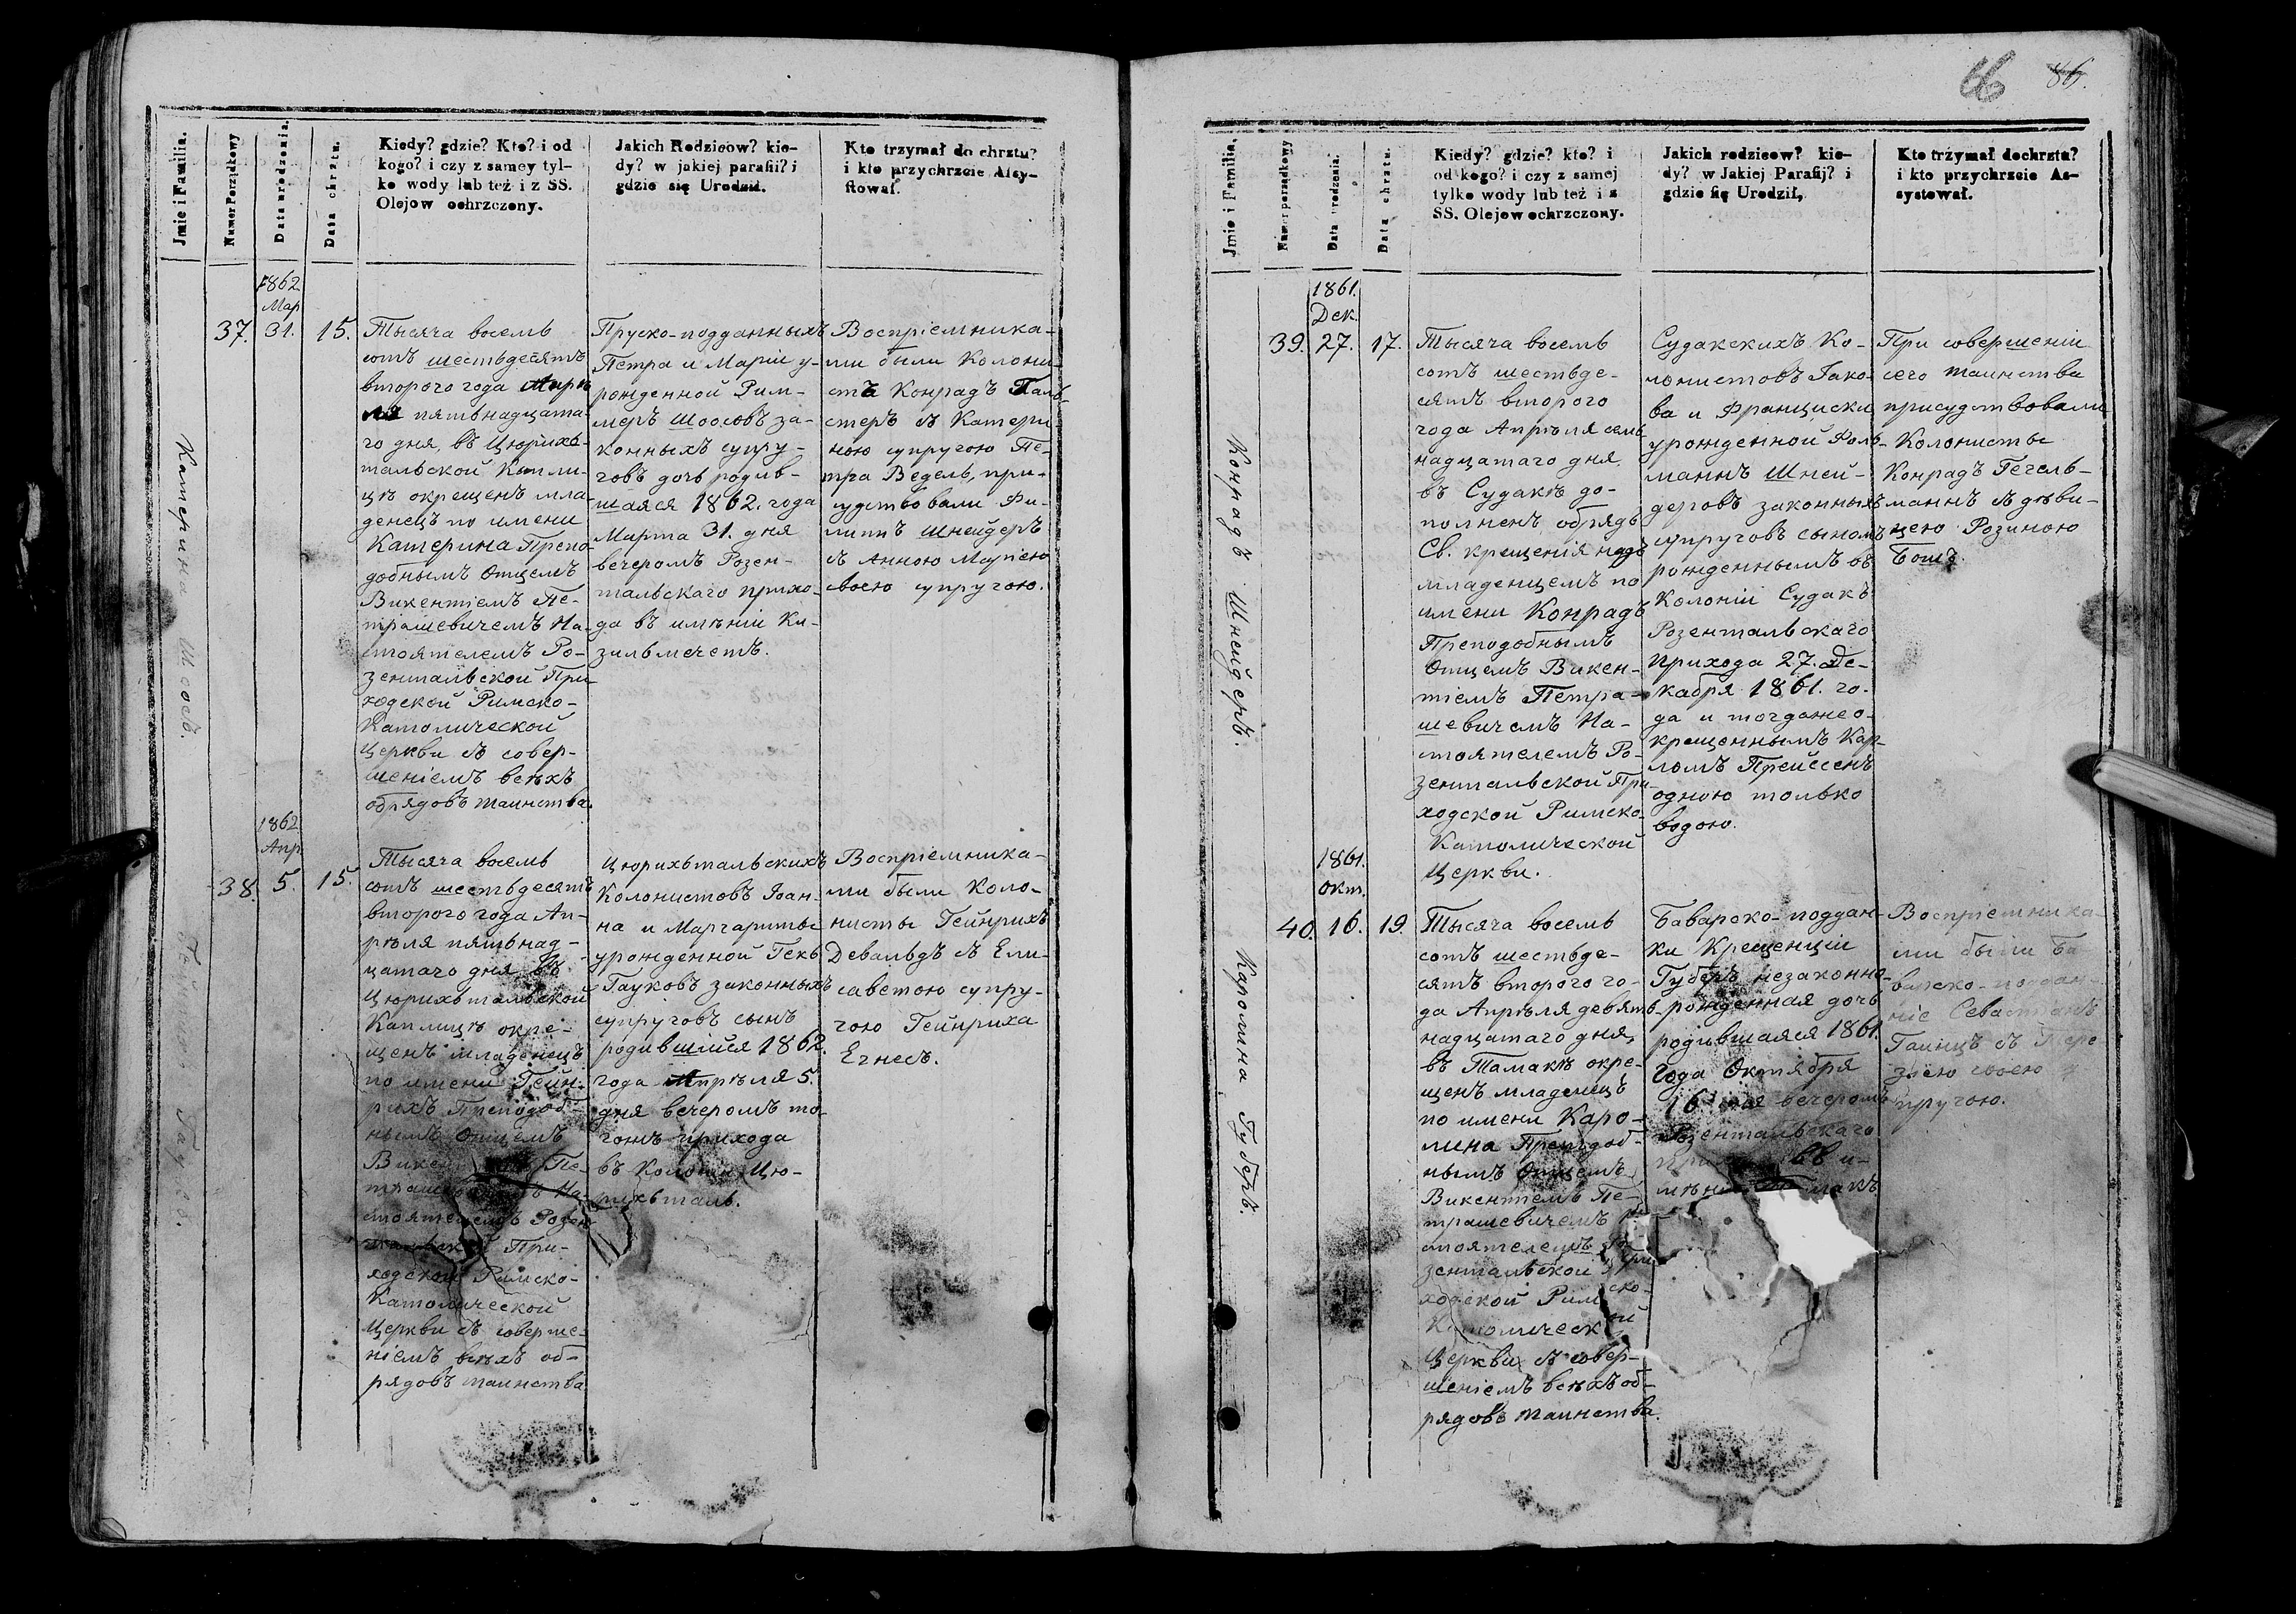 Jmie i Familia.
Numer Porządkowy
Data urodzenia.
Data chrztu.
Kiedy? gdzie? Kto? i od
kogo? i czy z samey tyl-
ko wody lub też i z SS.
Olejow ochrzczony.
Jakich Rodzicow? kie-
dy? w jakiej parafii? i
gdzie się Urodził.
Kto trzymał do chrztu?
i kto przychrzcie Assy-
stował.
Катерина Шоосъ.
1862
Мар
37.
31.
15.
Тысяча восемь
сотъ шестьдесятъ
втораго года Апрѣ
ля пятьнадцата-
го дня, въ Цюрихъ-
тальской Капли-
цѣ окрещенъ мла-
денецъ по имени
Катерина Препо-
добнымъ Отцемъ
Викентіемъ Пе-
трашевичемъ На-
стоятелемъ Ро-
зентальской При-
ходской Римско-
Католической
Церкви съ совер-
шеніемъ всѣхъ
обрядовъ таинства.
Пруско-подданныхъ
Петра и Маріи у-
рожденной Рим-
меръ Шоосовъ за-
конныхъ супру-
говъ дочь родив-
шаяся 1862. года
Марта 31. дня
вечеромъ Розен-
тальскаго прихо-
да въ имѣніи Ки-
зильмечетъ.
Воспріемника-
ми были Колони-
стъ Конрадъ Паль-
стеръ съ Катери-
ною супругою Пе-
тра Ведель, при-
судствовали Фи-
липъ Шнейдеръ
съ Анною Маріею
своею супругою.
Гауссъ.
1862
Апр
38.
5.
15.
Тысяча восемь
сотъ шестьдесятъ
втораго года Ап-
рѣля пятьнад-
цатаго дня, въ
Цюрихътальской
Каплицѣ окре-
щенъ младенецъ
по имени Гейн-
рихъ Преподоб-
нымъ Отцемъ
Пе-
На-
стоятелемъ Розен
При-
ходской Римско-
Католической
Церкви съ соверше-
ніемъ всѣхъ об-
рядовъ таинства
Цюрихътальскихъ
Колонистовъ Іоан-
на и Маргариты
урожденной Гекъ
Гауковъ законныхъ
супруговъ сынъ
родившійся 1862.
года Апрѣля 5.
дня вечеромъ то-
гожъ прихода
въ Колоніи Цю-
рихъталь.
Воспріемника-
ми были Коло-
нисты Гейнрихъ
Девальдъ съ Ели-
саветою супру-
гою Гейнриха
Егнесъ.
46
86.
Jmie i Familia.
Numer porządkowy
Data urodzenia.
Data chrztu.
Kiedy? gdzie? kto? i
od kogo? i czy z samej
tylko wody lub też i z
SS. Olejow ochrzczony.
Jakich rodzicow? kie-
dy? w Jakiej Parafij? i
gdzie się Urodził,
Kto trzymał dochrztu?
i kto przychrzcie As-
systował.
Конрадъ Шнейдеръ.
1861.
Дек.
39.
27.
17.
Тысяча восемь
сотъ шестьде-
сятъ втораго
года Апрѣля семь-
надцатаго дня
въ Судакѣ до-
полненъ обрядъ
Св. крещенія надъ
младенцемъ по
имени Конрадъ
Преподобнымъ
Отцемъ Викен-
тіемъ Петра-
шевичемъ На-
стоятелемъ Ро-
зентальской При
ходской Римско-
Католической
Церкви.
Судакскихъ Ко-
лонистовъ Іако-
ва и Франциски
урожденной Фоль-
маннъ Шней-
деровъ законныхъ
супруговъ сыномъ
рожденнымъ въ
Колоніи Судакъ
Розентальскаго
прихода 27. Де-
кабря 1861. го-
да и тогдажео-
крещеннымъ Кар-
ломъ Прейссенъ
одною только
водою.
При совершеніи
сего таинства
присудствовали
Колонисты
Конрадъ Гегель-
маннъ съ дѣви-
цею Розиною
Бошъ.
Каролина Губеръ.
1861.
окт.
40.
16.
19.
Тысяча восемь
сотъ шестьде-
сятъ втораго го-
да Апрѣля девять-
надцатаго дня,
въ Тамакѣ окре-
щенъ младенецъ
по имени Каро-
лина Преподоб-
нымъ Отцемъ
Викентіемъ Пе-
трашевичемъ На
стоятелемъ Ро
зентальской При
ходской Римско-
Католической
Церкви съ совер-
шеніемъ всѣхъ об-
рядовъ таинства.
Баварско-поддан-
ки Крещенціи
Губеръ незаконно-
рожденная дочь
родившаяся 1861.
года Октября
16 дня вечеромъ
Розентальскаго
въ и-
Воспріемника-
ми были Ба
варско-поддан
ніе Севастіанъ
Гаинцъ съ Тере
зіею своею су
пругою.